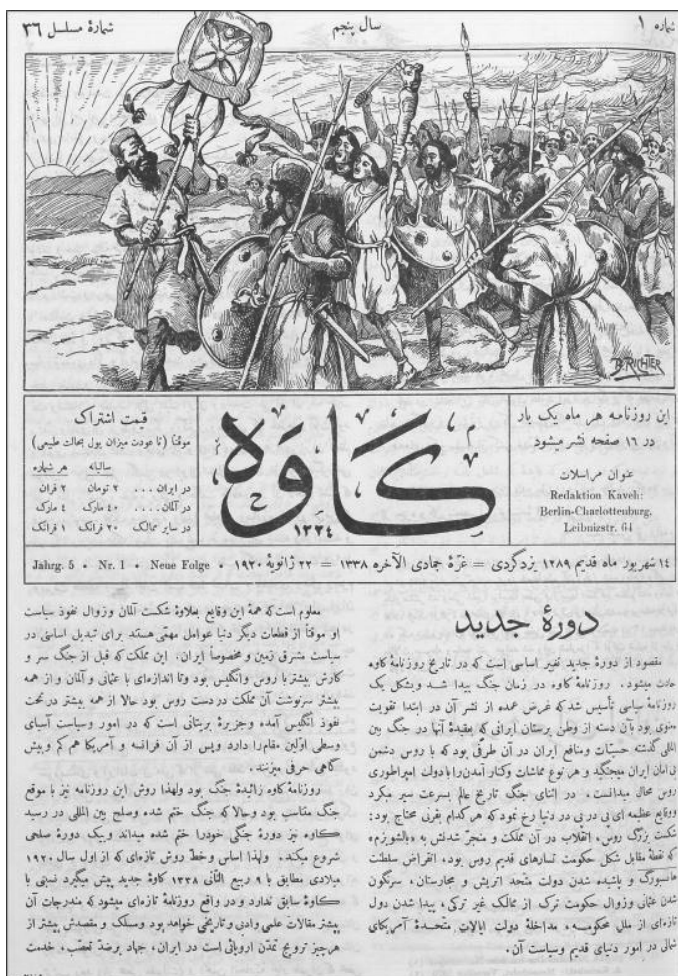 شماره ۱
سال پنجم
شمارهٔ مسلسل ۳۶
B. RICHTER
این روزنامه هر ماه یک بار
در ۱۶ صفحه نشر میشود
عنوان مراسلات
Redaktion Kaveh:
Berlin-Charlottenburg,
Leibnizstr. 64
کاوه
۱۳۳۴
قیمت اشتراک
موقتاً (تا عودت میزان پول بحالت طبیعی)
سالیانه هر شماره
در ایران . . . . ۲ تومان ۲ قران
در آلمان . . . . ۴۰ مارک ۴ مارک
در سایر ممالک ۲۰ فرانک ۱ فرانک
۱۴ شهریور ماه قدیم ۱۲۸۹ یزدگردی = غرّهٔ جمادی الآخره ۱۳۳۸ = ۲۲ ژانویهٔ ۱۹۲۰ • Jahrg. 5 • Nr. 1 • Neue Folge
دورهٔ جدید
مقصود از دورهٔ جدید تغیر اساسی است که در تاریخ روزنامهٔ کاوه
حادث میشود. روزنامهٔ کاوه در زمان جنگ پیدا شد و بشکل یک
روزنامهٔ سیاسی تأسیس شد که غرض عمده از نشر آن در ابتدا تقویت
معنوی بود بآن دسته از وطن پرستان ایرانی که بعقیدهٔ آنها در جنگ بین
المللی گذشته حسیّات و منافع ایران در آن طرفی بود که با روس دشمن
بی امان ایران میجنگید و هر نوع مماشات و کنار آمدن را با دولت امپراطوری
روس محال میدانست. در اثنای جنگ تاریخ عالم بسرعت سیر میکرد
و وقایع عظیمه ای پی در پی در دنیا رخ نمود که هر کدام بقرنی محتاج بود:
شکست بزرگ روس، انقلاب در آن مملکت و منجرّ شدنش به «بالشویزم»
که نقطهٔ مقابل شکل حکومت تسارهای قدیم روس بود، انقراض سلطنت
هابسبورگ و پاشیده شدن دولت متّحد اتریش و مجارستان، سرنگون
شدن عثمانی و زوال حکومت ترک از ممالک غیر ترکی، پیدا شدن دول
تازه‌ای از ملل محکومه، مداخلهٔ دولت ایالات متّحدهٔ آمریکای
شمالی در امور دنیای قدیم و سیاست آن.
معلوم است که همهٔ این وقایع بعلاوهٔ شکست آلمان و زوال نفوذ سیاست
او موقتاً از قطعات دیگر دنیا عوامل مهمّی هستند برای تبدیل اساسی در
سیاست مشرق زمین و مخصوصاً ایران. این مملکت که قبل از جنگ سر و
کارش بیشتر با روس و انگلیس بود و تا اندازه‌ای با عثمانی و آلمان و از همه
بیشتر سرنوشت آن مملکت در دست روس بود حالا از همه بیشتر در تحت
نفوذ انگلیس آمده و جزیرهٔ بریتانی است که در امور و سیاست آسیای
وسطی اوّلین مقام را دارد و پس از آن فرانسه و آمریکا هم کم و بیش
گاهی حرفی میزنند.
روزنامهٔ کاوه زائیدهٔ جنگ بود و لهذا روش این روزنامه نیز با موقع
جنگ مناسب بود و حالا که جنگ ختم شده و صلح بین المللی در رسید
کاوه نیز دورهٔ جنگی خود را ختم شده میداند و بیک دورهٔ صلحی
شروع میکند. و لهذا اساس و خطّ روش تازه‌ای که از اول سال ۱۹۲۰
میلادی مطابق با ۹ ربیع الثّانی ۱۳۳۸ کاوهٔ جدید پیش میگیرد نسبتی با
کاوهٔ سابق ندارد و در واقع روزنامهٔ تازه‌ای میشود که مندرجات آن
بیشتر مقالات علمی و ادبی و تاریخی خواهد بود و مسلک و مقصدش بیشتر از
هر چیز ترویج تمدّن اروپائی است در ایران، جهاد بر ضدّ تعصّب، خدمت